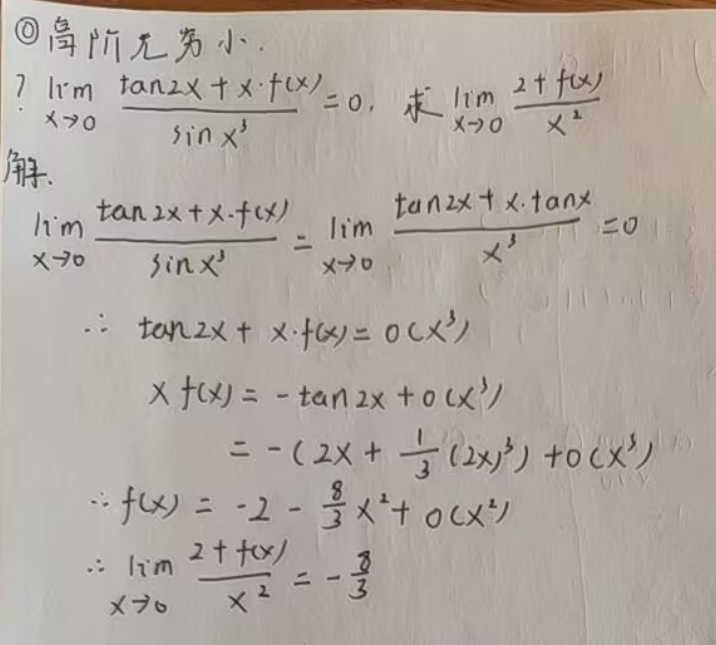 ◎高阶无穷小.
? lim x→0 (tan2x + x·f(x))/(sin x³) = 0. 求 lim x→0 (2+f(x))/x²
解.
lim x→0 (tan2x + x·f(x))/(sin x³) = lim x→0 (tan2x + x·tanx)/x³ = 0
∴ tan2x + x·f(x) = o(x³)
x f(x) = -tan2x + o(x³)
= -(2x + 1/3 (2x)³) + o(x³)
∴ f(x) = -2 - 8/3 x² + o(x²)
∴ lim x→0 (2+f(x))/x² = -8/3